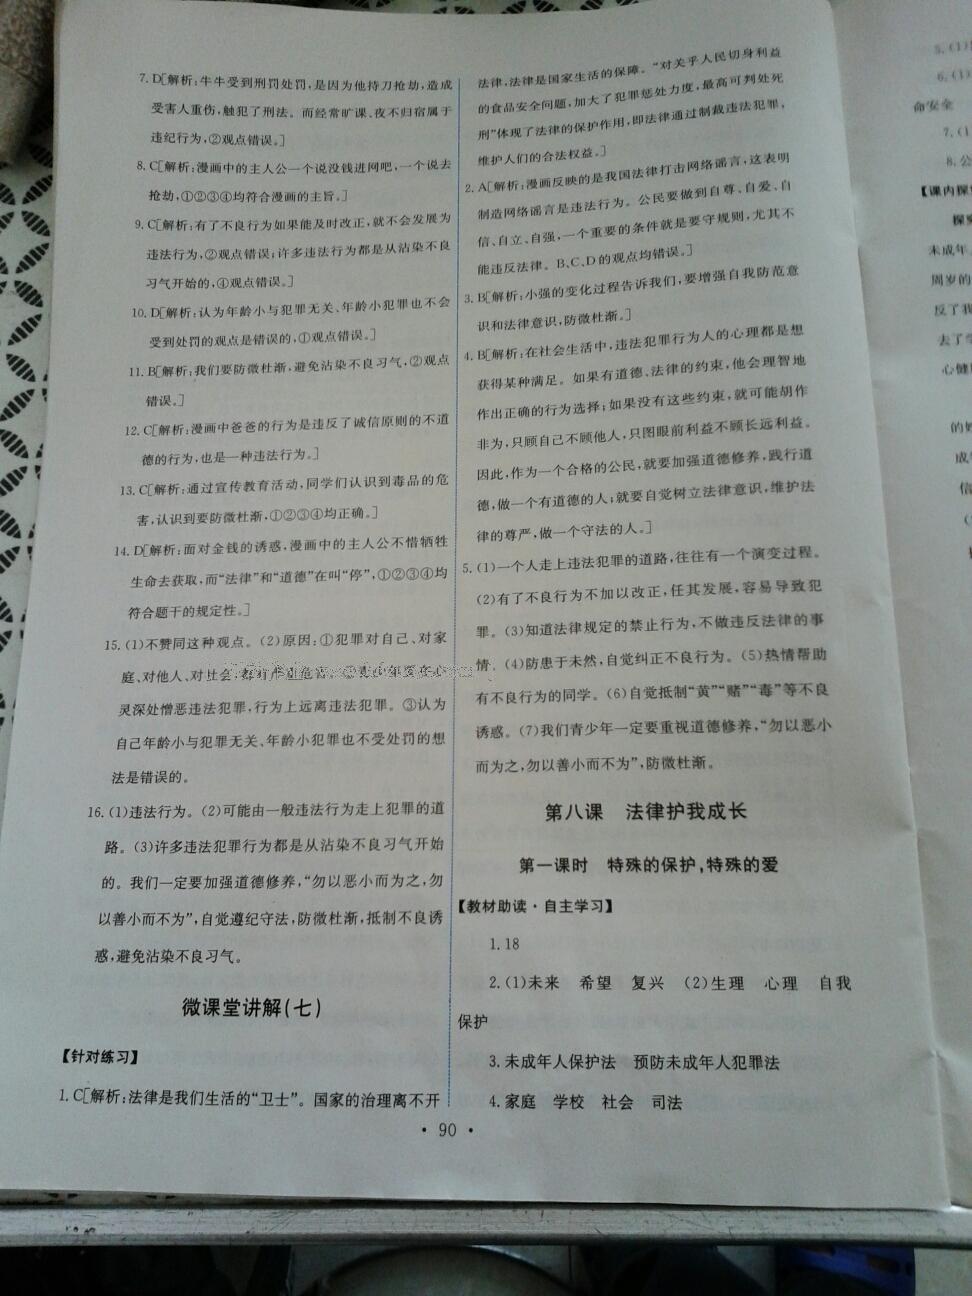 7. D[解析:牛牛受到刑罚处罚,是因为他持刀抢劫,造成
受害人重伤,触犯了刑法。而经常旷课、夜不归宿属于
违纪行为,②观点错误。]
8. C[解析:漫画中的主人公一个说没钱进网吧,一个说去
抢劫,①②③④均符合漫画的主旨。]
9. C[解析:有了不良行为如果能及时改正,就不会发展为
违法行为,②观点错误;许多违法行为都是从沾染不良
习气开始的,④观点错误。]
10. D[解析:认为年龄小与犯罪无关、年龄小犯罪也不会
受到处罚的观点是错误的,①观点错误。]
11. B[解析:我们要防微杜渐,避免沾染不良习气,②观点
错误。]
12. C[解析:漫画中爸爸的行为是违反了诚信原则的不道
德的行为,也是一种违法行为。]
13. C[解析:通过宣传教育活动,同学们认识到毒品的危
害,认识到要防微杜渐,①②③④均正确。]
14. D[解析:面对金钱的诱惑,漫画中的主人公不惜牺牲
生命去获取,而“法律”和“道德”在叫“停”,①②③④均
符合题干的规定性。]
15. (1)不赞同这种观点。(2)原因:①犯罪对自己、对家
庭、对他人、对社会
灵深处憎恶违法犯罪,行为上远离违法犯罪。③认为
自己年龄小与犯罪无关、年龄小犯罪也不受处罚的想
法是错误的。
16. (1)违法行为。(2)可能由一般违法行为走上犯罪的道
路。(3)许多违法犯罪行为都是从沾染不良习气开始
的。我们一定要加强道德修养,“勿以恶小而为之,勿
以善小而不为”,自觉遵纪守法,防微杜渐,抵制不良诱
惑,避免沾染不良习气。
微课堂讲解(七)
【针对练习】
1. C[解析:法律是我们生活的“卫士”。国家的治理离不开
法律,法律是国家生活的保障。“对关乎人民切身利益
的食品安全问题,加大了犯罪惩处力度,最高可判处死
刑”体现了法律的保护作用,即法律通过制裁违法犯罪,
维护人们的合法权益。]
2. A[解析:漫画反映的是我国法律打击网络谣言,这表明
制造网络谣言是违法行为。公民要做到自尊、自爱、自
信、自立、自强,一个重要的条件就是要守规则,尤其不
能违反法律。B、C、D的观点均错误。]
3. B[解析:小强的变化过程告诉我们,要增强自我防范意
识和法律意识,防微杜渐。]
4. B[解析:在社会生活中,违法犯罪行为人的心理都是想
获得某种满足。如果有道德、法律的约束,他会理智地
作出正确的行为选择;如果没有这些约束,就可能胡作
非为,只顾自己不顾他人,只图眼前利益不顾长远利益。
因此,作为一个合格的公民,就要加强道德修养,践行道
德,做一个有道德的人;就要自觉树立法律意识,维护法
律的尊严,做一个守法的人。]
5. (1)一个人走上违法犯罪的道路,往往有一个演变过程。
(2)有了不良行为不加以改正,任其发展,容易导致犯
罪。(3)知道法律规定的禁止行为,不做违反法律的事
情。(4)防患于未然,自觉纠正不良行为。(5)热情帮助
有不良行为的同学。(6)自觉抵制“黄”“赌”“毒”等不良
诱惑。(7)我们青少年一定要重视道德修养,“勿以恶小
而为之,勿以善小而不为”,防微杜渐。
第八课 法律护我成长
第一课时 特殊的保护,特殊的爱
【教材助读·自主学习】
1. 18
2. (1)未来 希望 复兴 (2)生理 心理 自我
保护
3. 未成年人保护法 预防未成年人犯罪法
4. 家庭 学校 社会 司法
· 90 ·
5. (1)
6. (1)
命安全
7. (1
8. 公
【课内探
探
未成年
周岁的
反了我
去了
心健
的
成
信